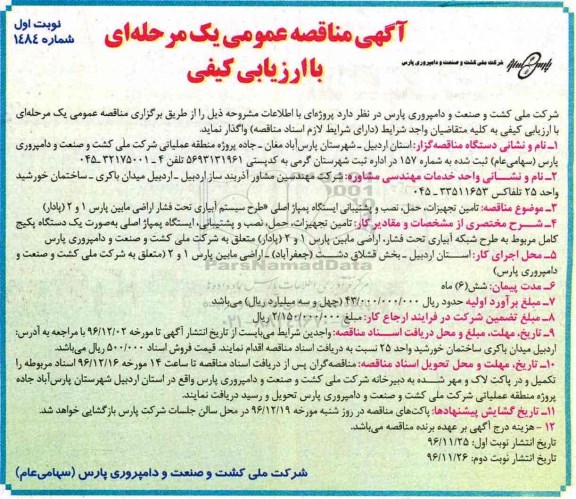 نوبت اول
شماره ۱۴۸۴
آگهی مناقصه عمومی یک مرحله‌ای
با ارزیابی کیفی
شرکت ملی کشت و صنعت و دامپروری پارس
شرکت ملی کشت و صنعت و دامپروری پارس در نظر دارد پروژه‌ای با اطلاعات مشروحه ذیل را از طریق برگزاری مناقصه عمومی یک مرحله‌ای
با ارزیابی کیفی به کلیه متقاضیان واجد شرایط (دارای شرایط لازم اسناد مناقصه) واگذار نماید.
۱ـ نام و نشانی دستگاه مناقصه‌گزار: استان اردبیل ـ شهرستان پارس‌آباد مغان ـ جاده پروژه منطقه عملیاتی شرکت ملی کشت و صنعت و دامپروری
پارس (سهامی‌عام) ثبت شده به شماره ۱۵۷ در اداره ثبت شهرستان گرمی به کدپستی ۵۶۹۳۱۳۱۹۶۱ تلفن ۴ ـ ۳۲۱۷۵۰۰۱ـ۰۴۵
۲ـ نام و نشانی واحد خدمات مهندسی مشاوره: شرکت مهندسین مشاور آذربند ساز اردبیل ـ اردبیل میدان باکری ـ ساختمان خورشید
واحد ۲۵ تلفاکس ۳۳۵۱۱۶۵۳ ـ ۰۴۵
۳ـ موضوع مناقصه: تامین تجهیزات، حمل، نصب و پشتیبانی ایستگاه پمپاژ اصلی «طرح سیستم آبیاری تحت فشار اراضی مابین پارس ۱ و ۲ (پادار)
۴ـ شرح مختصری از مشخصات و مقادیر کار: تامین تجهیزات، حمل، نصب و پشتیبانی، ایستگاه پمپاژ اصلی به‌صورت یک دستگاه پکیج
کامل مربوط به طرح شبکه آبیاری تحت فشار، اراضی مابین پارس ۱ و ۲ (پادار) متعلق به شرکت ملی کشت و صنعت و دامپروری پارس
۵ـ محل اجرای کار: استان اردبیل ـ بخش قشلاق دشت (جعفرآباد) ـ اراضی مابین پارس ۱ و ۲ (متعلق به شرکت ملی کشت و صنعت و
دامپروری پارس)
۶ـ مدت پیمان: شش(۶) ماه
۷ـ مبلغ برآورد اولیه حدود ریال ۴۳/۰۰۰/۰۰۰/۰۰۰ (چهل و سه میلیارد ریال) می‌باشد
۸ـ مبلغ تضمین شرکت در فرایند ارجاع کار: مبلغ ۲/۱۵۰/۰۰۰/۰۰۰ ریال می‌باشد.
۹ـ تاریخ، مهلت، مبلغ و محل دریافت اسناد مناقصه: واجدین شرایط می‌بایست از تاریخ انتشار آگهی تا مورخه ۹۶/۱۲/۰۲ با مراجعه به آدرس:
اردبیل میدان باکری ساختمان خورشید واحد ۲۵ نسبت به دریافت اسناد مناقصه اقدام نمایند. قیمت فروش اسناد ۵۰۰/۰۰۰ ریال می‌باشد.
۱۰ـ تاریخ، مهلت و محل تحویل اسناد مناقصه: مناقصه‌گران پس از دریافت اسناد مناقصه تا ساعت ۱۴ مورخه ۹۶/۱۲/۱۶ اسناد مربوطه را
تکمیل و در پاکت لاک و مهر شده به دبیرخانه شرکت ملی کشت و صنعت و دامپروری پارس واقع در استان اردبیل شهرستان پارس‌آباد جاده
پروژه منطقه عملیاتی شرکت ملی کشت و صنعت و دامپروری پارس تحویل و رسید دریافت نمایند.
۱۱ـ تاریخ گشایش پیشنهادها: پاکت‌های مناقصه در روز شنبه مورخه ۹۶/۱۲/۱۹ در محل سالن جلسات شرکت پارس بازگشایی خواهد شد.
۱۲ ـ هزینه درج آگهی بر عهده برنده مناقصه می‌باشد.
تاریخ انتشار نوبت اول: ۹۶/۱۱/۲۵
تاریخ انتشار نوبت دوم: ۹۶/۱۱/۲۶
شرکت ملی کشت و صنعت و دامپروری پارس (سهامی‌عام)
ParsNamadData